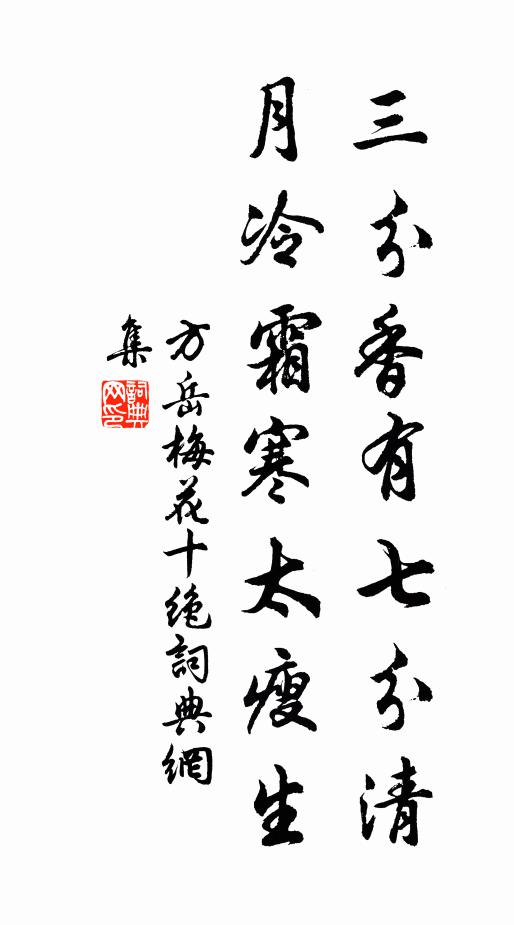 三分香有七分清
月冷霜寒太瘦生
方岳梅花十绝詞典網
集
詞典
网印